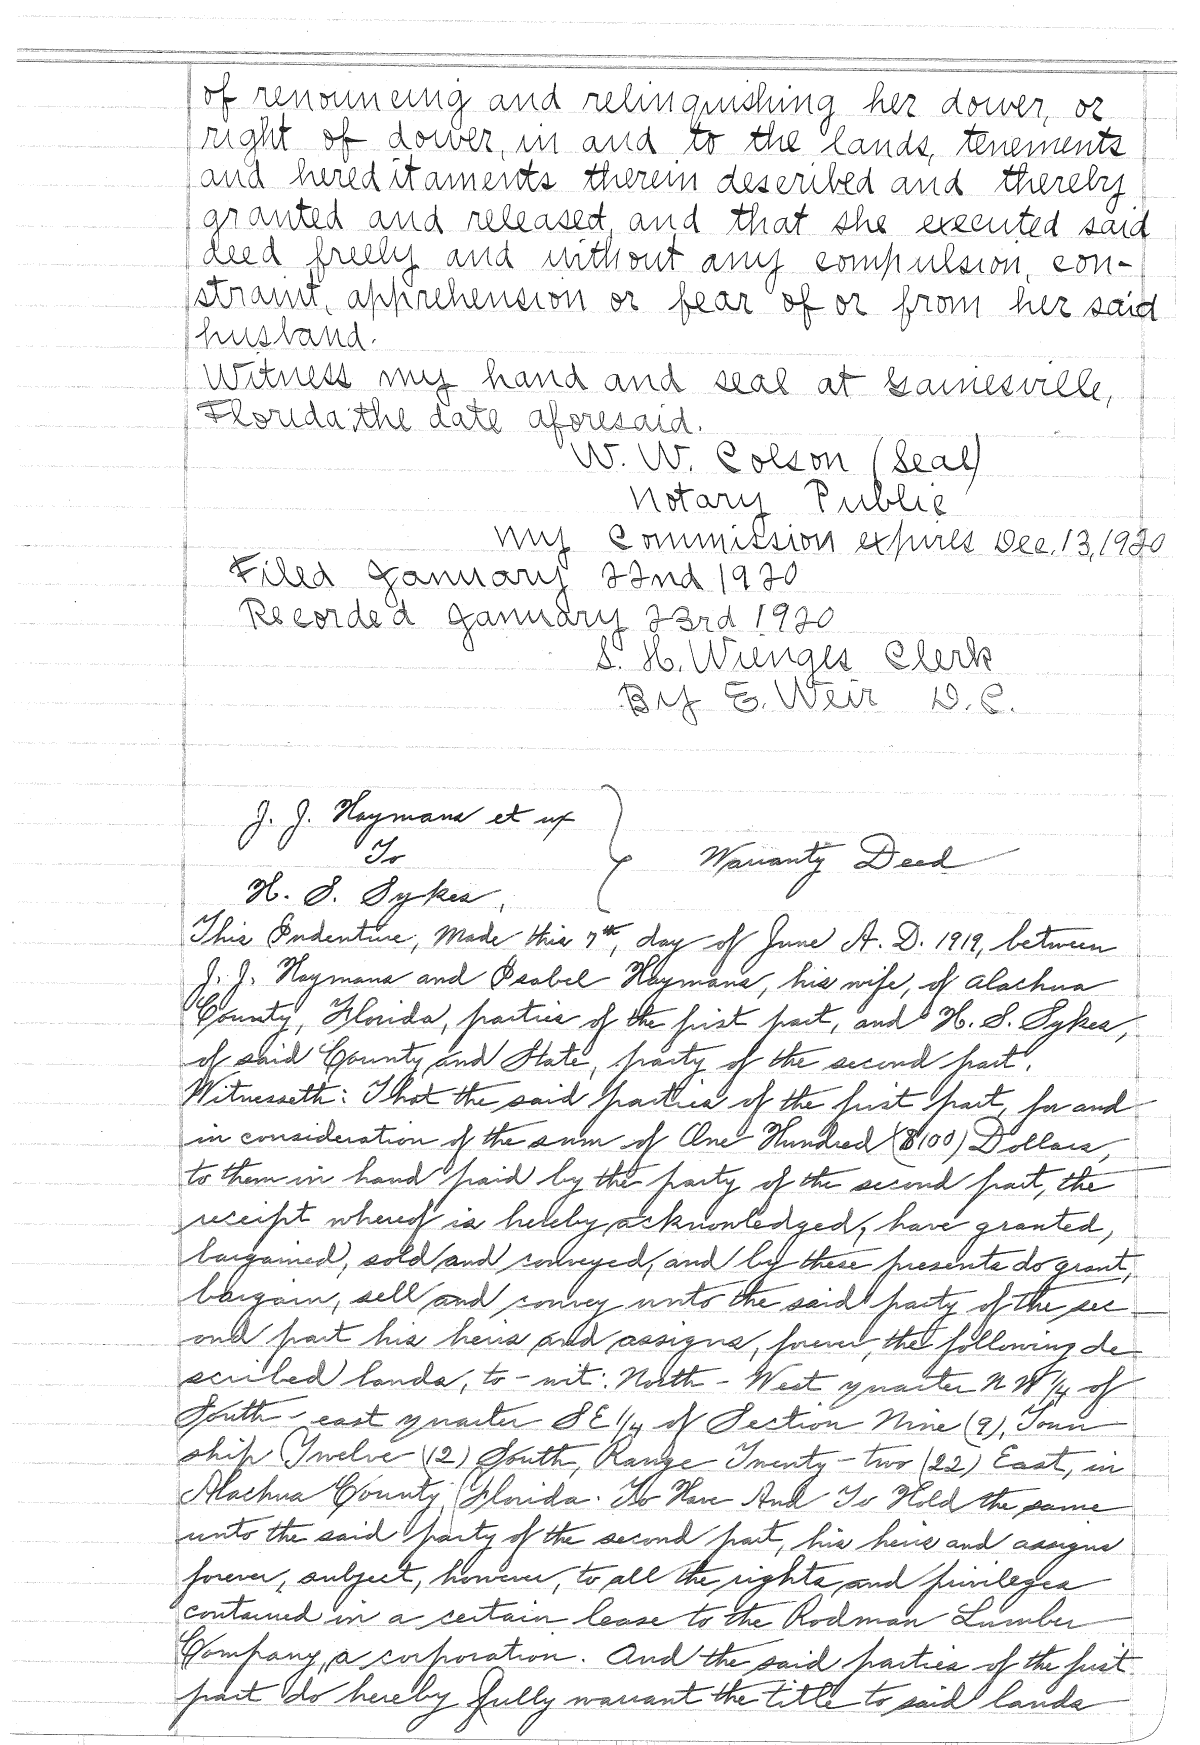 of renouncing and relinquishing her dower, or
right of dower, in and to the lands, tenements
and hereditaments therein described and thereby
granted and released, and that she executed said
deed freely and without any compulsion, con-
straint, apprehension or fear of or from her said
husband.
Witness my hand and seal at Gainesville,
Florida, the date aforesaid.
W. W. Colson (Seal)
Notary Public
My Commission expires Dec. 13, 1920
Filed January 22nd 1920
Recorded January 23rd 1920
S. H. Wienges Clerk
By E. Weir D. C.
J. J. Haymans et ux
To
Warranty Deed
H. S. Sykes,
This Indenture, Made this 7th, day of June A. D. 1919, between
J. J. Haymans and Isabel Haymans, his wife, of Alachua
County, Florida, parties of the first part, and H. S. Sykes,
of said County and State, party of the second part.
Witnesseth: That the said parties of the first part, for and
in consideration of the sum of One Hundred ($100) Dollars,
to them in hand paid by the party of the second part, the
receipt whereof is hereby acknowledged, have granted,
bargained, sold and conveyed, and by these presents do grant,
bargain, sell and convey unto the said party of the sec
ond part his heirs and assigns, forever, the following de
scribed lands, to-wit: North-West quarter N W 1/4 of
South-east quarter SE 1/4 of Section Nine (9), Town
ship Twelve (12) South, Range Twenty-two (22) East, in
Alachua County, Florida. To Have And To Hold the same
unto the said party of the second part, his heirs and assigns
forever, subject, however, to all the rights and privileges
contained in a certain lease to the Rodman Lumber
Company, a corporation. And the said parties of the first
part do hereby fully warrant the title to said lands